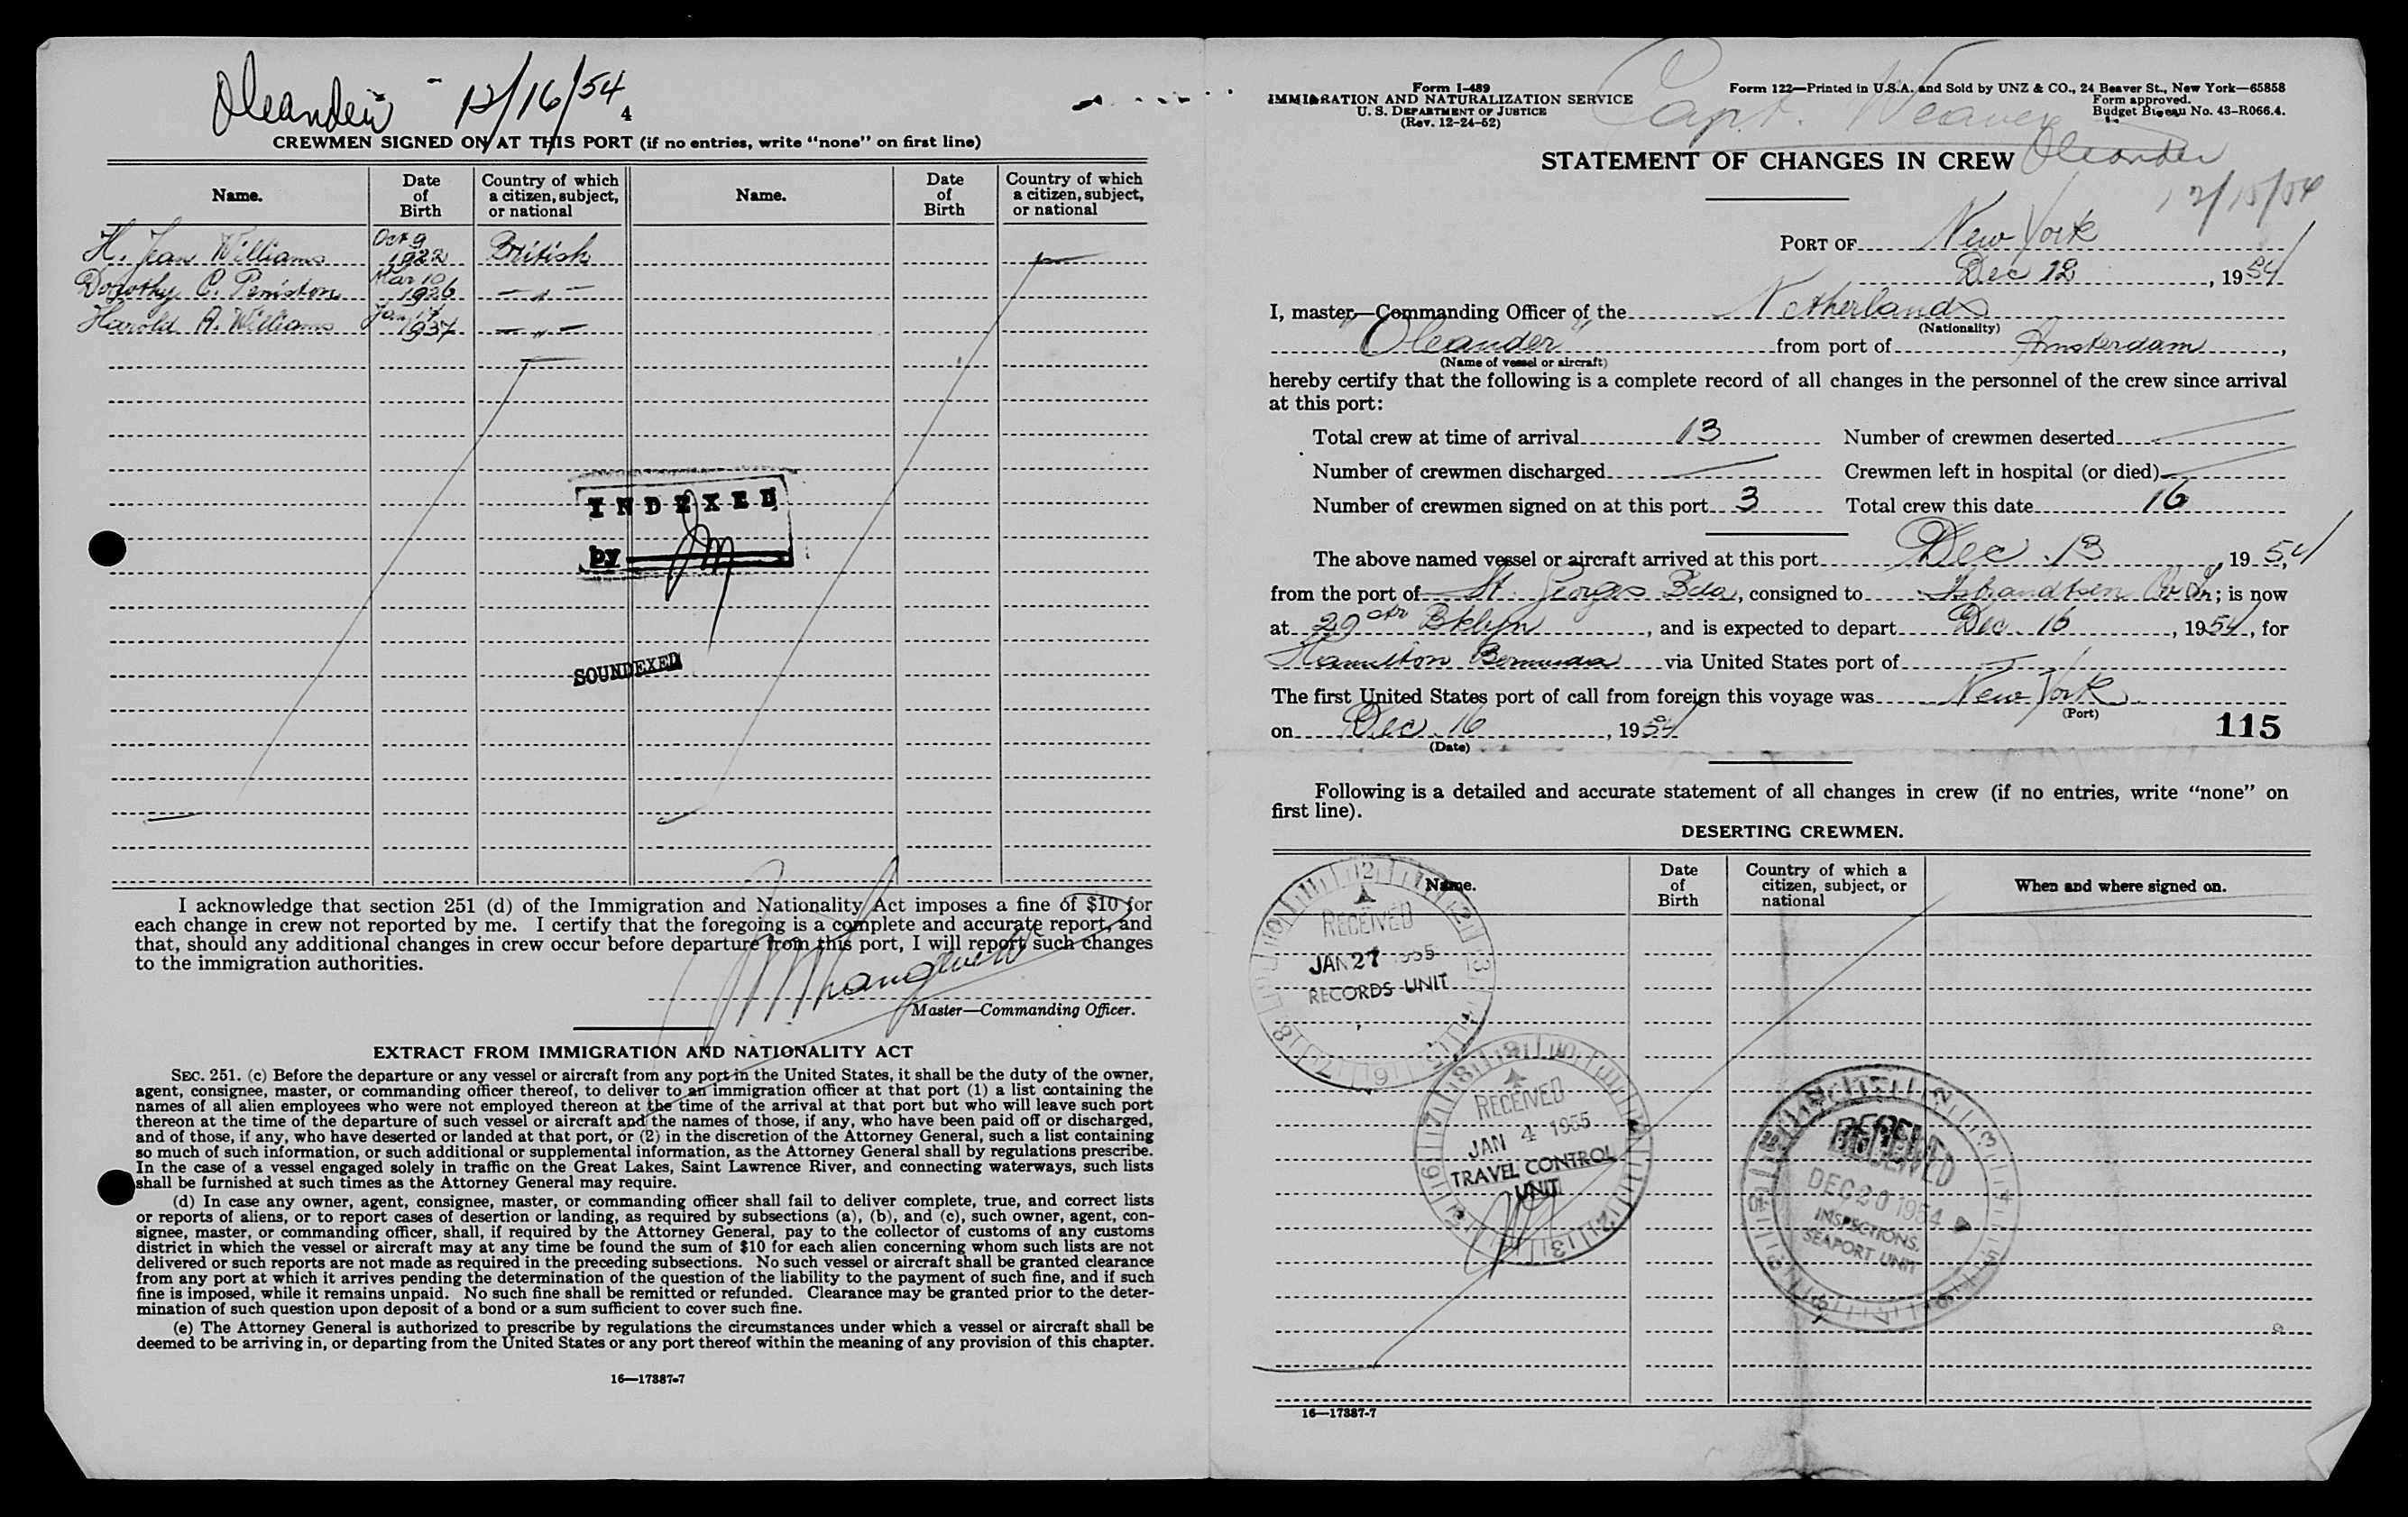 Oleander - 12/16/54
4
CREWMEN SIGNED ON AT THIS PORT (if no entries, write “none” on first line)
Name. Date of Birth Country of which a citizen, subject, or national Name. Date of Birth Country of which a citizen, subject, or national
H. Jean Williams Oct 9 1922 British
Dorothy C. Peniston Mar 10 1926 — " —
Harold A. Williams Jan 1937 — " —
INDEXED
by
SOUNDEXED
I acknowledge that section 251 (d) of the Immigration and Nationality Act imposes a fine of $10 for
each change in crew not reported by me. I certify that the foregoing is a complete and accurate report, and
that, should any additional changes in crew occur before departure from this port, I will report such changes
to the immigration authorities.
Master—Commanding Officer.
EXTRACT FROM IMMIGRATION AND NATIONALITY ACT
SEC. 251. (c) Before the departure or any vessel or aircraft from any port in the United States, it shall be the duty of the owner,
agent, consignee, master, or commanding officer thereof, to deliver to an immigration officer at that port (1) a list containing the
names of all alien employees who were not employed thereon at the time of the arrival at that port but who will leave such port
thereon at the time of the departure of such vessel or aircraft and the names of those, if any, who have been paid off or discharged,
and of those, if any, who have deserted or landed at that port, or (2) in the discretion of the Attorney General, such a list containing
so much of such information, or such additional or supplemental information, as the Attorney General shall by regulations prescribe.
In the case of a vessel engaged solely in traffic on the Great Lakes, Saint Lawrence River, and connecting waterways, such lists
shall be furnished at such times as the Attorney General may require.
(d) In case any owner, agent, consignee, master, or commanding officer shall fail to deliver complete, true, and correct lists
or reports of aliens, or to report cases of desertion or landing, as required by subsections (a), (b), and (c), such owner, agent, con-
signee, master, or commanding officer, shall, if required by the Attorney General, pay to the collector of customs of any customs
district in which the vessel or aircraft may at any time be found the sum of $10 for each alien concerning whom such lists are not
delivered or such reports are not made as required in the preceding subsections. No such vessel or aircraft shall be granted clearance
from any port at which it arrives pending the determination of the question of the liability to the payment of such fine, and if such
fine is imposed, while it remains unpaid. No such fine shall be remitted or refunded. Clearance may be granted prior to the deter-
mination of such question upon deposit of a bond or a sum sufficient to cover such fine.
(e) The Attorney General is authorized to prescribe by regulations the circumstances under which a vessel or aircraft shall be
deemed to be arriving in, or departing from the United States or any port thereof within the meaning of any provision of this chapter.
16—17387-7
Form I-489
IMMIGRATION AND NATURALIZATION SERVICE
U. S. DEPARTMENT OF JUSTICE
(Rev. 12-24-52)
Capt. Weaver
Form 122—Printed in U.S.A. and Sold by UNZ & CO., 24 Beaver St., New York—65858
Form approved.
Budget Bureau No. 43-R066.4.
STATEMENT OF CHANGES IN CREW Oleander
12/15/54
PORT OF New York
Dec 12, 1954
I, master—Commanding Officer of the Netherlands
(Nationality)
Oleander from port of Amsterdam,
(Name of vessel or aircraft)
hereby certify that the following is a complete record of all changes in the personnel of the crew since arrival
at this port:
Total crew at time of arrival 13 Number of crewmen deserted
Number of crewmen discharged Crewmen left in hospital (or died)
Number of crewmen signed on at this port 3 Total crew this date 16
The above named vessel or aircraft arrived at this port Dec. 13, 1954
from the port of St. Georges Bda, consigned to Isbrandtsen; is now
at 29 Str Bklyn, and is expected to depart Dec. 16, 1954, for
Hamilton Bermuda via United States port of
The first United States port of call from foreign this voyage was New York
(Port)
on Dec. 16, 1954
(Date)
115
Following is a detailed and accurate statement of all changes in crew (if no entries, write “none” on
first line).
DESERTING CREWMEN.
Name. Date of Birth Country of which a citizen, subject, or national When and where signed on.
RECEIVED
JAN 27 1955
RECORDS UNIT
RECEIVED
JAN 4 1955
TRAVEL CONTROL
UNIT
RECEIVED
DEC 20 1954
INSPECTIONS.
SEAPORT UNIT
16—17387-7